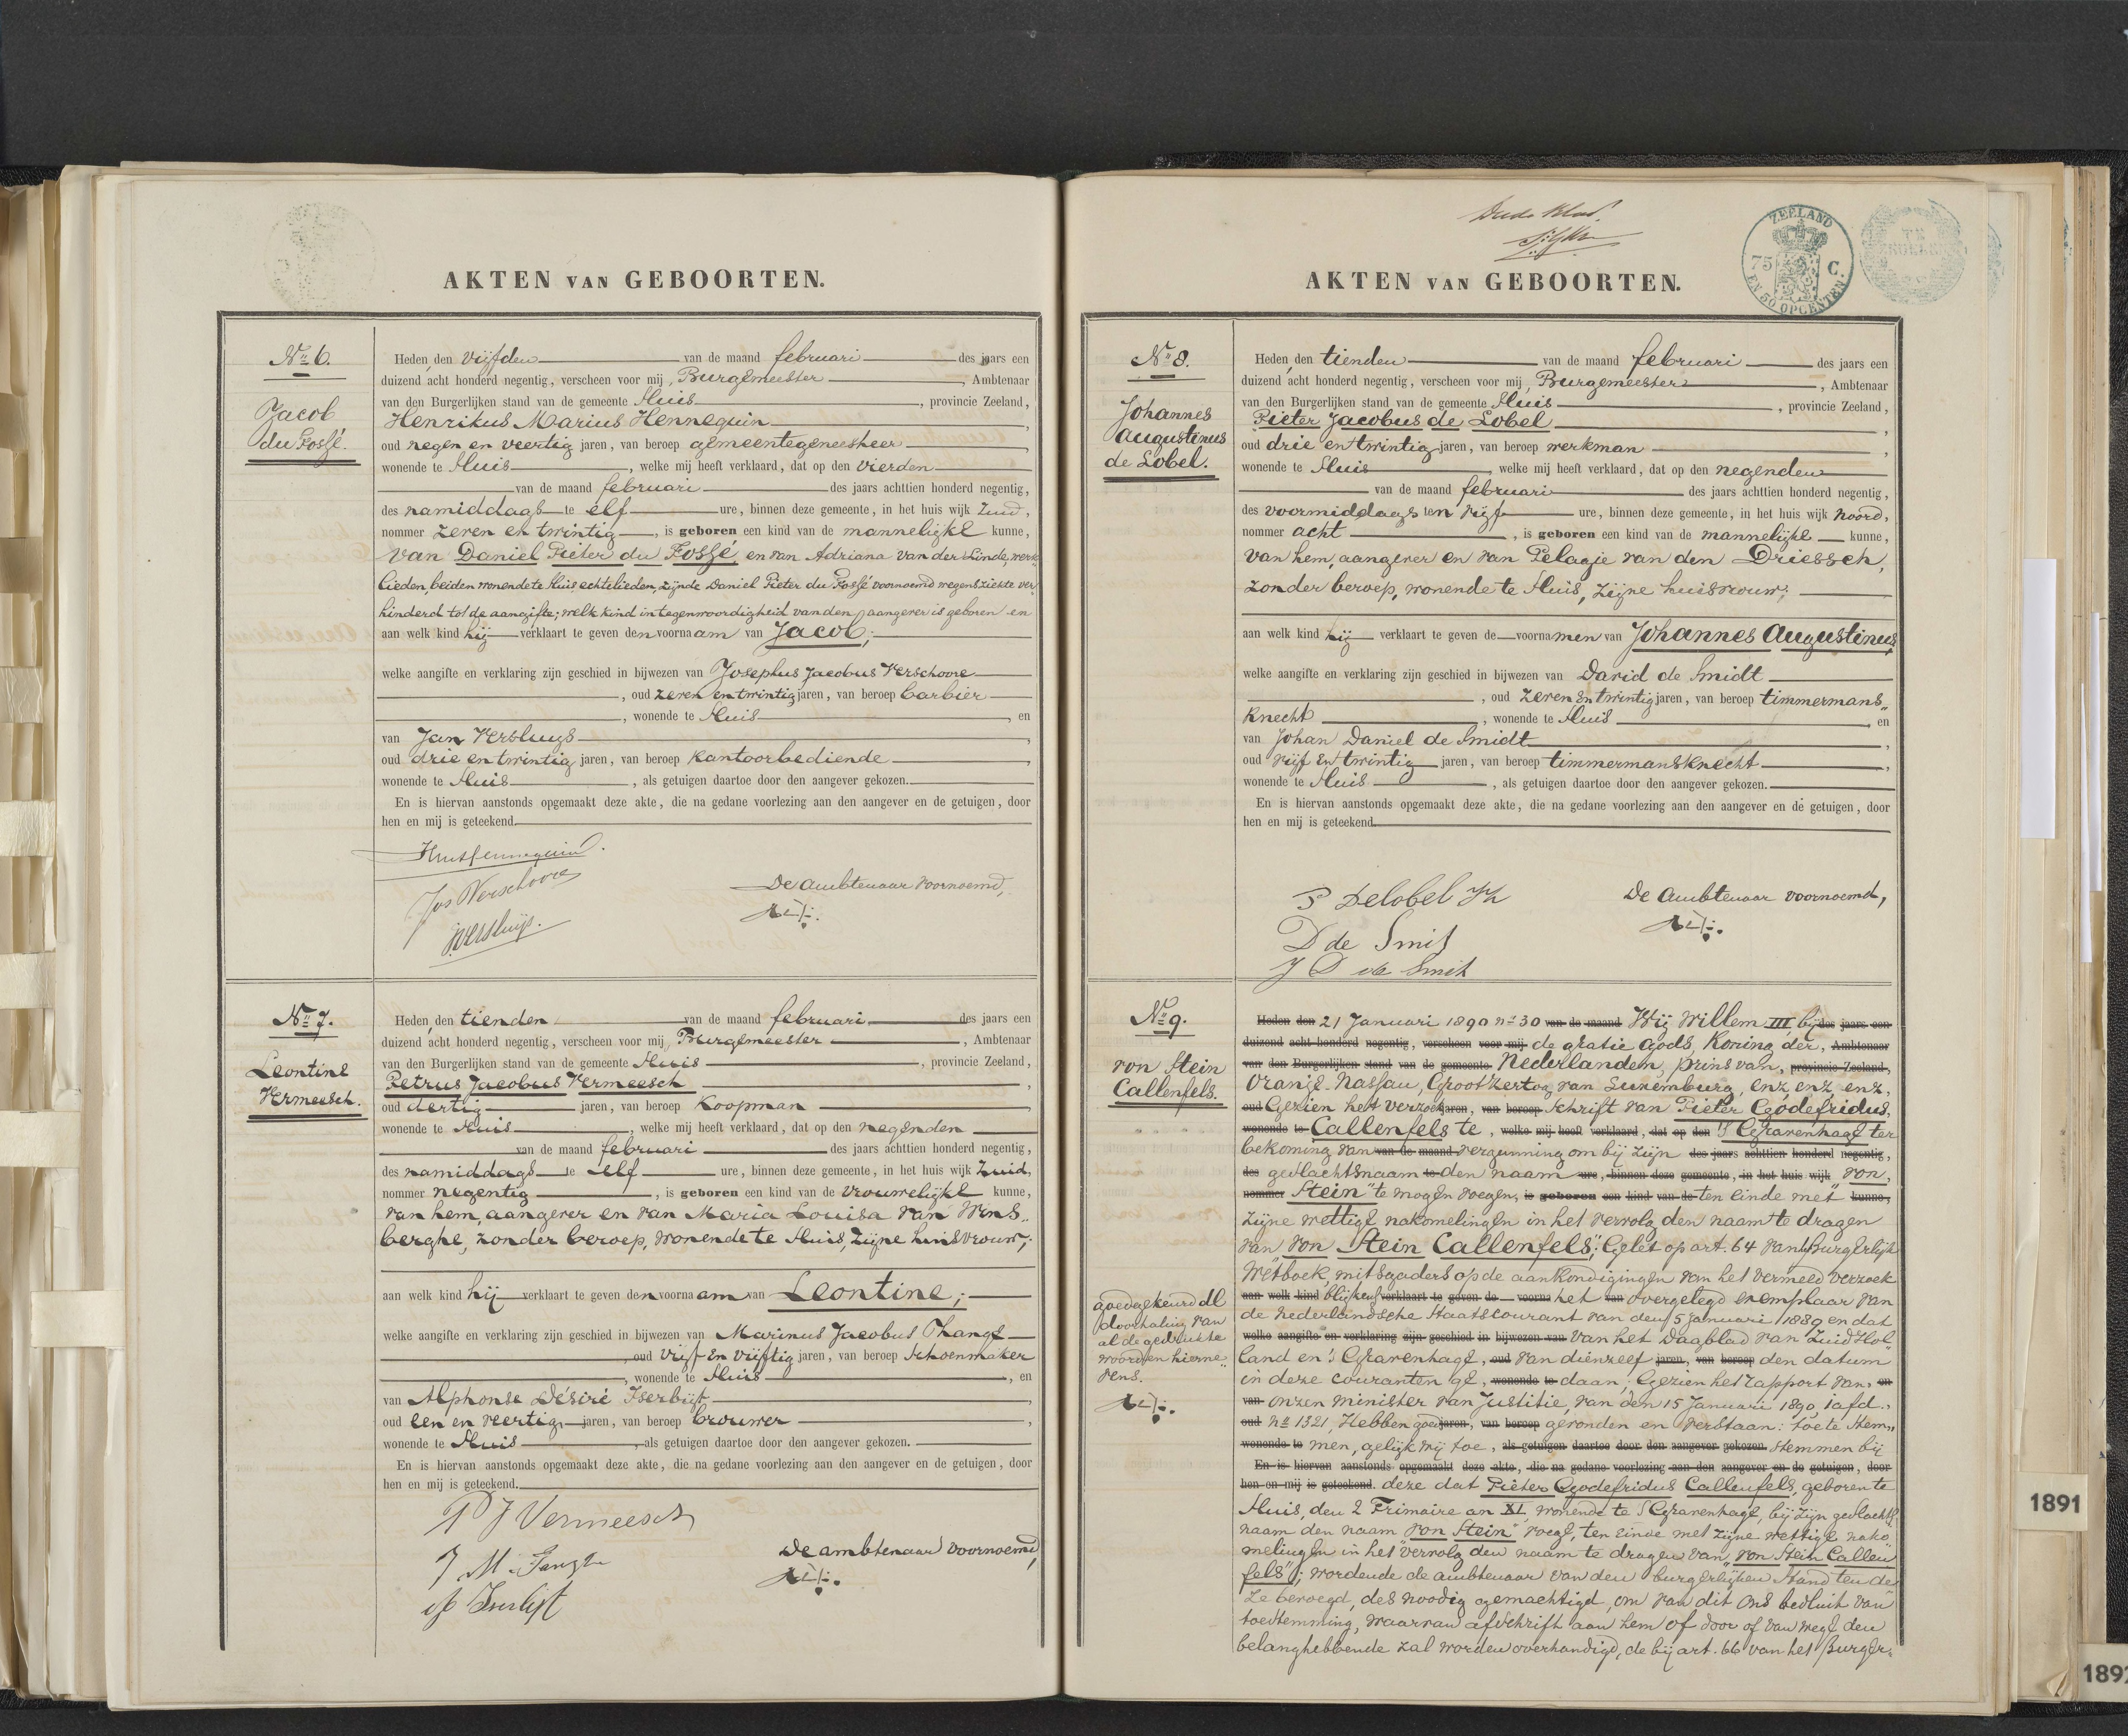 AKTEN VAN GEBOORTEN.
No 6.
Jacob
du Fossé.
Heden den vijfden van de maand februari des jaars een
duizend acht honderd negentig, verscheen voor mij, Burgemeester, Ambtenaar
van den Burgerlijken stand van de gemeente Sluis, provincie Zeeland,
Henrikus Marius Hennequin,
oud negen en veertig jaren, van beroep gemeentegeneesheer,
wonende te Sluis, welke mij heeft verklaard, dat op den vierden
van de maand februari des jaars achttien honderd negentig,
des namiddags te elf ure, binnen deze gemeente, in het huis wijk Zuid,
nommer zeven en twintig, is geboren een kind van de mannelijke kunne,
van Daniel Pieter du Fossé, en van Adriana van der Linde, werk-
lieden, beiden wonende te Sluis, echtelieden, zijnde Daniel Pieter du Fossé voornoemd wegens ziekte ver-
hinderd tot de aangifte; welk kind in tegenwoordigheid van den aangever is geboren en
aan welk kind hij verklaart te geven den voornaam van Jacob;
welke aangifte en verklaring zijn geschied in bijwezen van Josephus Jacobus Verschoore
, oud zeven en twintig jaren, van beroep barbier
, wonende te Sluis, en
van Jan Versluys,
oud drie en twintig jaren, van beroep kantoorbediende,
wonende te Sluis, als getuigen daartoe door den aangever gekozen.
En is hiervan aanstonds opgemaakt deze akte, die na gedane voorlezing aan den aangever en de getuigen, door
hen en mij is geteekend.
HMHennequin.
Jos Verschoore
De ambtenaar voornoemd,
JVersluijs.
No 7.
Leontine
Vermeesch.
Heden den tienden van de maand februari des jaars een
duizend acht honderd negentig, verscheen voor mij, Burgemeester, Ambtenaar
van den Burgerlijken stand van de gemeente Sluis, provincie Zeeland,
Petrus Jacobus Vermeesch,
oud dertig jaren, van beroep koopman,
wonende te Sluis, welke mij heeft verklaard, dat op den negenden
van de maand februari des jaars achttien honderd negentig,
des namiddags te elf ure, binnen deze gemeente, in het huis wijk Zuid,
nommer negentig, is geboren een kind van de vrouwelijke kunne,
van hem, aangever en van Maria Louisa van Wins-
berghe, zonder beroep, wonende te Sluis, zijne huisvrouw;
aan welk kind hij verklaart te geven den voornaam van Leontine;
welke aangifte en verklaring zijn geschied in bijwezen van Marinus Jacobus Thange
, oud vijf en vijftig jaren, van beroep schoenmaker
, wonende te Sluis, en
van Alphonse Désiré Iserbijt,
oud een en veertig jaren, van beroep brouwer,
wonende te Sluis, als getuigen daartoe door den aangever gekozen.
En is hiervan aanstonds opgemaakt deze akte, die na gedane voorlezing aan den aangever en de getuigen, door
hen en mij is geteekend.
P J Vermeesch
De ambtenaar voornoemd,
ZEELAND
75 C.
EN 50 OPCENTEN
AKTEN VAN GEBOORTEN.
No 8.
Johannes
Augustinus
de Lobel.
Heden den tienden van de maand februari des jaars een
duizend acht honderd negentig, verscheen voor mij, Burgemeester, Ambtenaar
van den Burgerlijken stand van de gemeente Sluis, provincie Zeeland,
Pieter Jacobus de Lobel,
oud drie en twintig jaren, van beroep werkman,
wonende te Sluis, welke mij heeft verklaard, dat op den negenden
van de maand februari des jaars achttien honderd negentig,
des voormiddags ten vijf ure, binnen deze gemeente, in het huis wijk Noord,
nommer acht, is geboren een kind van de mannelijke kunne,
van hem, aangever en van Pelagie van den Driessch,
zonder beroep, wonende te Sluis, zijne huisvrouw;
aan welk kind hij verklaart te geven de voornamen van Johannes Augustinus,
welke aangifte en verklaring zijn geschied in bijwezen van David de Smidt
, oud zeven en twintig jaren, van beroep timmermans-
knecht, wonende te Sluis, en
van Johan Daniel de Smidt,
oud vijf en twintig jaren, van beroep timmermansknecht,
wonende te Sluis, als getuigen daartoe door den aangever gekozen.
En is hiervan aanstonds opgemaakt deze akte, die na gedane voorlezing aan den aangever en de getuigen, door
hen en mij is geteekend.
P Delobel
De Ambtenaar voornoemd,
D de Smit
J D de Smit
No 9.
von Stein
Callenfels.
goedgekeurd de
doorhaling van
al de gedrukte
woorden hierne-
vens.
Heden den 21 Januari 1890 no 30 van de maand Wij Willem III, bij des jaars een
duizend acht honderd negentig, verscheen voor mij de gratie Gods, Koning der, Ambtenaar
van den Burgerlijken stand van de gemeente Nederlanden, Prins van, provincie Zeeland,
Oranje Nassau, Groothertog van Luxemburg, enz, enz, enz,
oud Gezien het verzoek jaren, van beroep schrift van Pieter Godefridus,
wonende te Callenfels te, welke mij heeft verklaard, dat op den 's Gravenhage ter
bekoming van van de maand vergunning om bij zijn des jaars achttien honderd negentig,
des geslachtsnaam te den naam ure, binnen deze gemeente, in het huis wijk "von,
nommer Stein" te mogen voegen, is geboren een kind van de ten einde met kunne,
zijne wettige nakomelingen in het vervolg den naam te dragen
van "von Stein Callenfels"; Gelet op art. 64 van 't Burgerlijk
Wetboek, mitsgaders op de aankondigingen van het vermeld verzoek
aan welk kind blijkens verklaart te geven de voorna het van overgelegd exemplaar van
de Nederlandsche Staatscourant van den 5 Januari 1889 en dat
welke aangifte en verklaring zijn geschied in bijwezen van van het Dagblad van Zuid Hol-
land en 's Gravenhage, oud van dienzelf jaren, van beroep den datum
in deze couranten ge, wonende te daan; Gezien het rapport van, en
van Onzen Minister van Justitie, van den 15 Januari 1890, 1e afd.,
oud no 1321, Hebben goed jaren, van beroep gevonden en verstaan: toe te stem-
wonende te men, gelijk wij toe, als getuigen daartoe door den aangever gekozen. stemmen bij
En is hiervan aanstonds opgemaakt deze akte, die na gedane voorlezing aan den aangever en de getuigen, door
hen en mij is geteekend. deze dat Pieter Godefridus Callenfels, geboren te
Sluis, den 2 Frimaire an XI, wonende te 's Gravenhage, bij zijn geslachts-
naam den naam "von Stein" voege, ten einde met zijne wettige nako-
melingen in het vervolg den naam te dragen van "von Stein Callen-
fels"; wordende de ambtenaar van den burgerlijken Stand ten de-
ze bevoegd, des noodig gemachtigd, om van dit Ons besluit van
toestemming, waarvan afschrift aan hem of door of van wege den
belanghebbende zal worden overhandigd, de bij art. 66 van het Burger-
1891